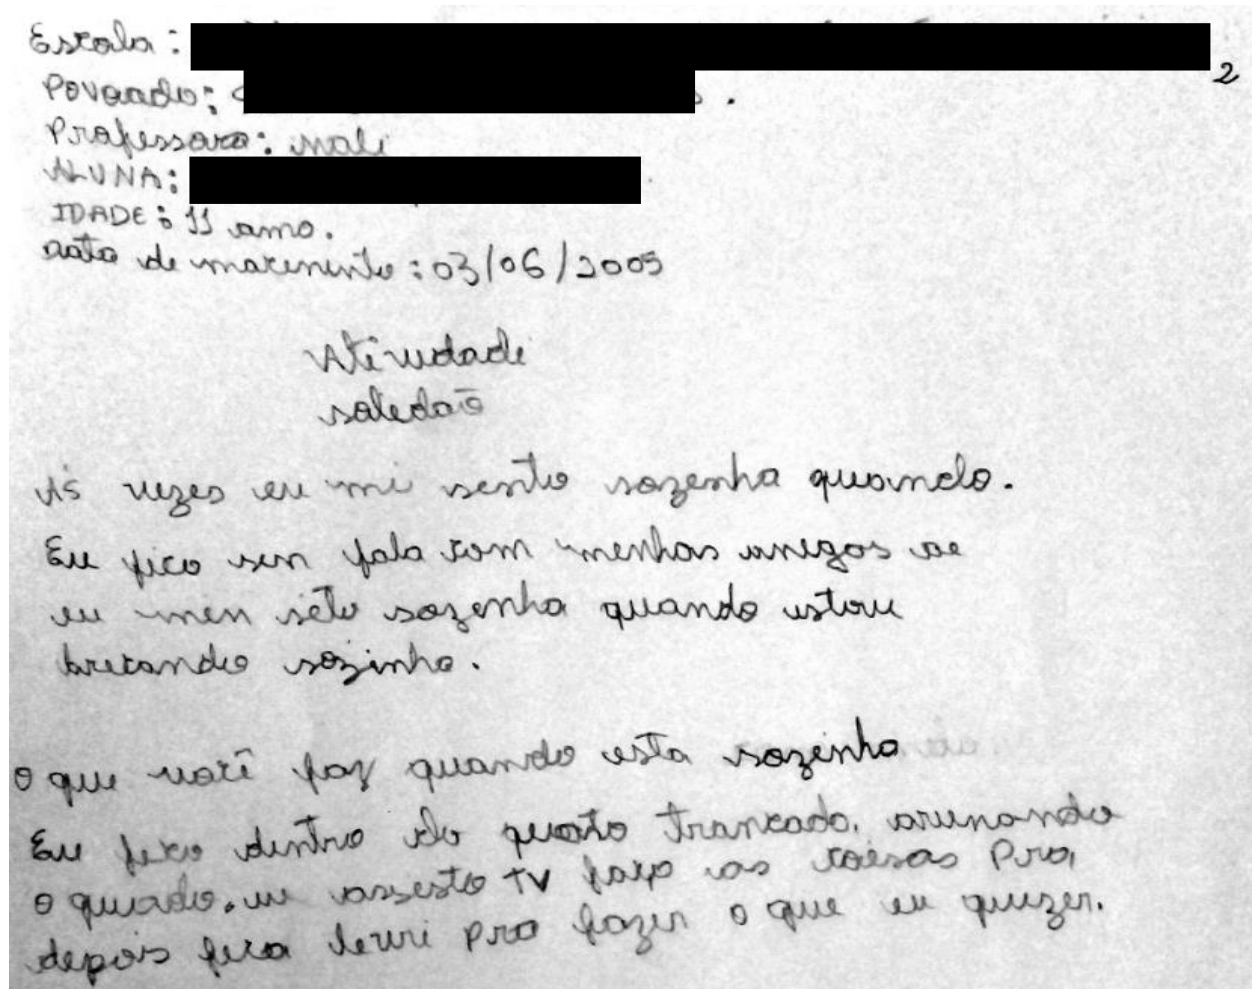 Escola:
2
Povoado:
Professora: mali
ALUNA:
IDADE: 11 ano.
data de nacimento: 03/06/2005
Atividade
soledaõ
Às vezes eu mi sento sozenha quando.
Eu fico sen fala com menhas amegos ae
eu men seto sozenha quando estou
brecando sozinha.
O que você faz quando esta sozenha
Eu feco dentro do quarto trancada, arumando
o quardo. eu assesto TV faço as coesas Pra,
depois feca levri pra fazer o que eu quizer.